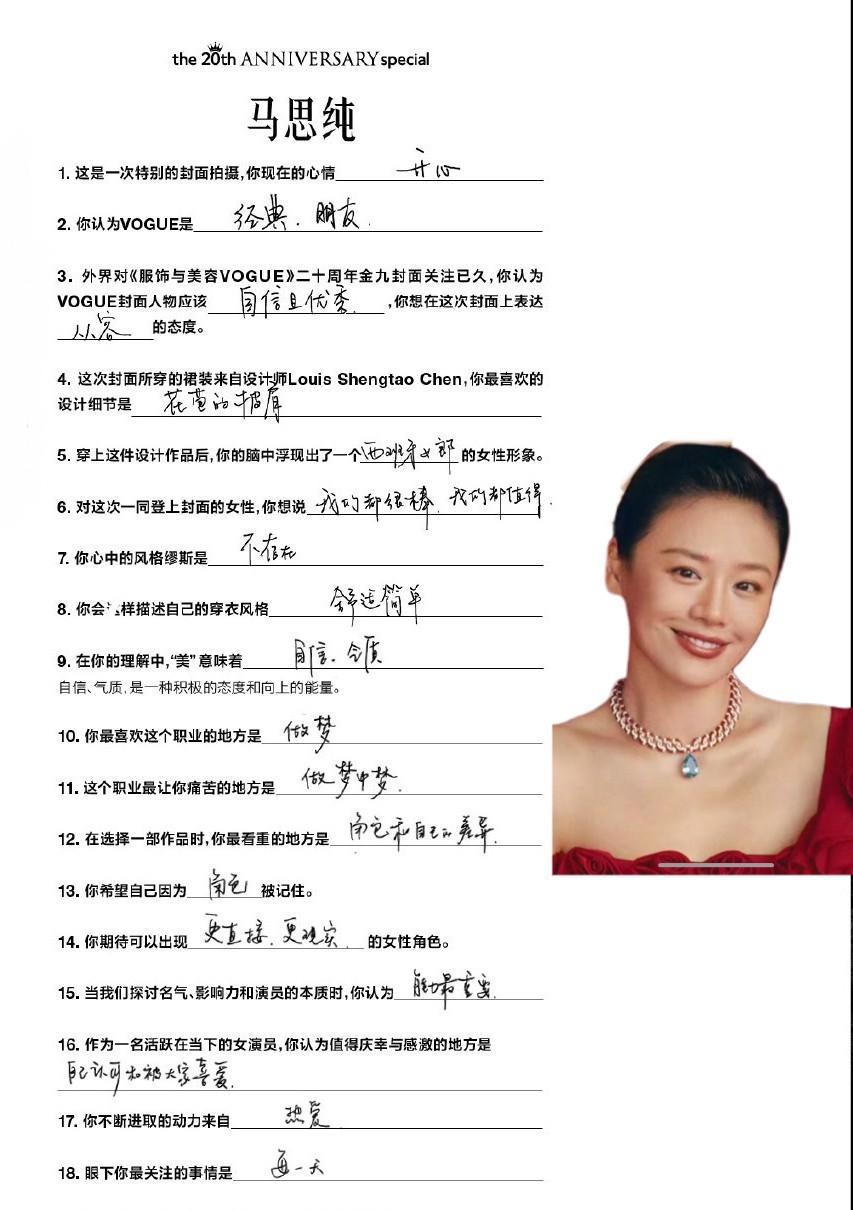 the 20th ANNIVERSARY special
马思纯
1. 这是一次特别的封面拍摄,你现在的心情 开心
2. 你认为VOGUE是 经典、朋友.
3. 外界对《服饰与美容VOGUE》二十周年金九封面关注已久,你认为
VOGUE封面人物应该 自信且优秀. ,你想在这次封面上表达
从容 的态度。
4. 这次封面所穿的裙装来自设计师Louis Shengtao Chen,你最喜欢的
设计细节是 花苞的披肩
5. 穿上这件设计作品后,你的脑中浮现出了一个 西班牙女郎 的女性形象。
6. 对这次一同登上封面的女性,你想说 我们都很棒. 我们都值得.
7. 你心中的风格缪斯是 不存在
8. 你会 样描述自己的穿衣风格 舒适简单
9. 在你的理解中,“美”意味着 自信、气质
自信、气质,是一种积极的态度和向上的能量。
10. 你最喜欢这个职业的地方是 做梦
11. 这个职业最让你痛苦的地方是 做梦中梦.
12. 在选择一部作品时,你最看重的地方是 角色和自己的差异.
13. 你希望自己因为 角色 被记住。
14. 你期待可以出现 更直接、更现实. 的女性角色。
15. 当我们探讨名气、影响力和演员的本质时,你认为 能力最重要.
16. 作为一名活跃在当下的女演员,你认为值得庆幸与感激的地方是
自己认可和被大家喜爱.
17. 你不断进取的动力来自 热爱
18. 眼下你最关注的事情是 每一天